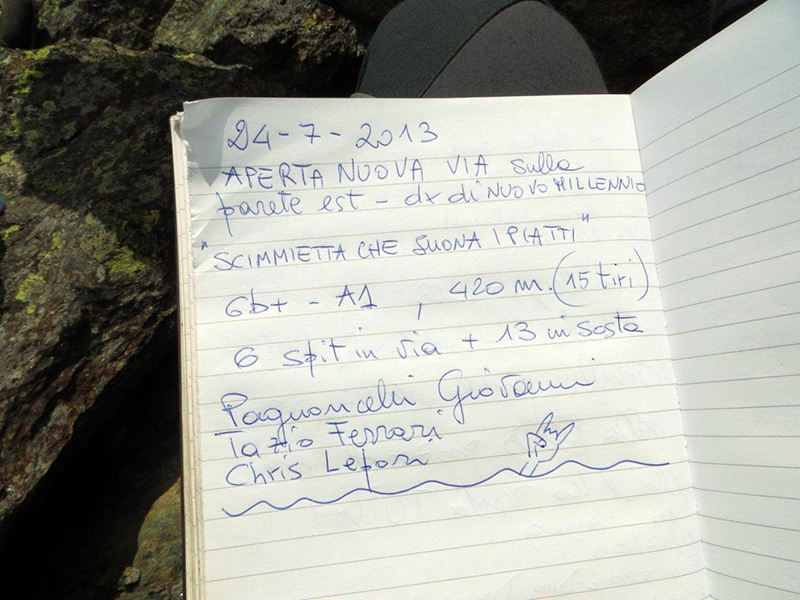 24-7-2013
APERTA NUOVA VIA sulla
parete est - dx di NUOVO MILLENNIO
"SCIMMIETTA CHE SUONA I PIATTI"
6b+ - A1 , 420 m. (15 tiri)
6 spit in via + 13 in sosta
Pagnoncelli Giovanni
Tazio Ferrari
Chris Lepori